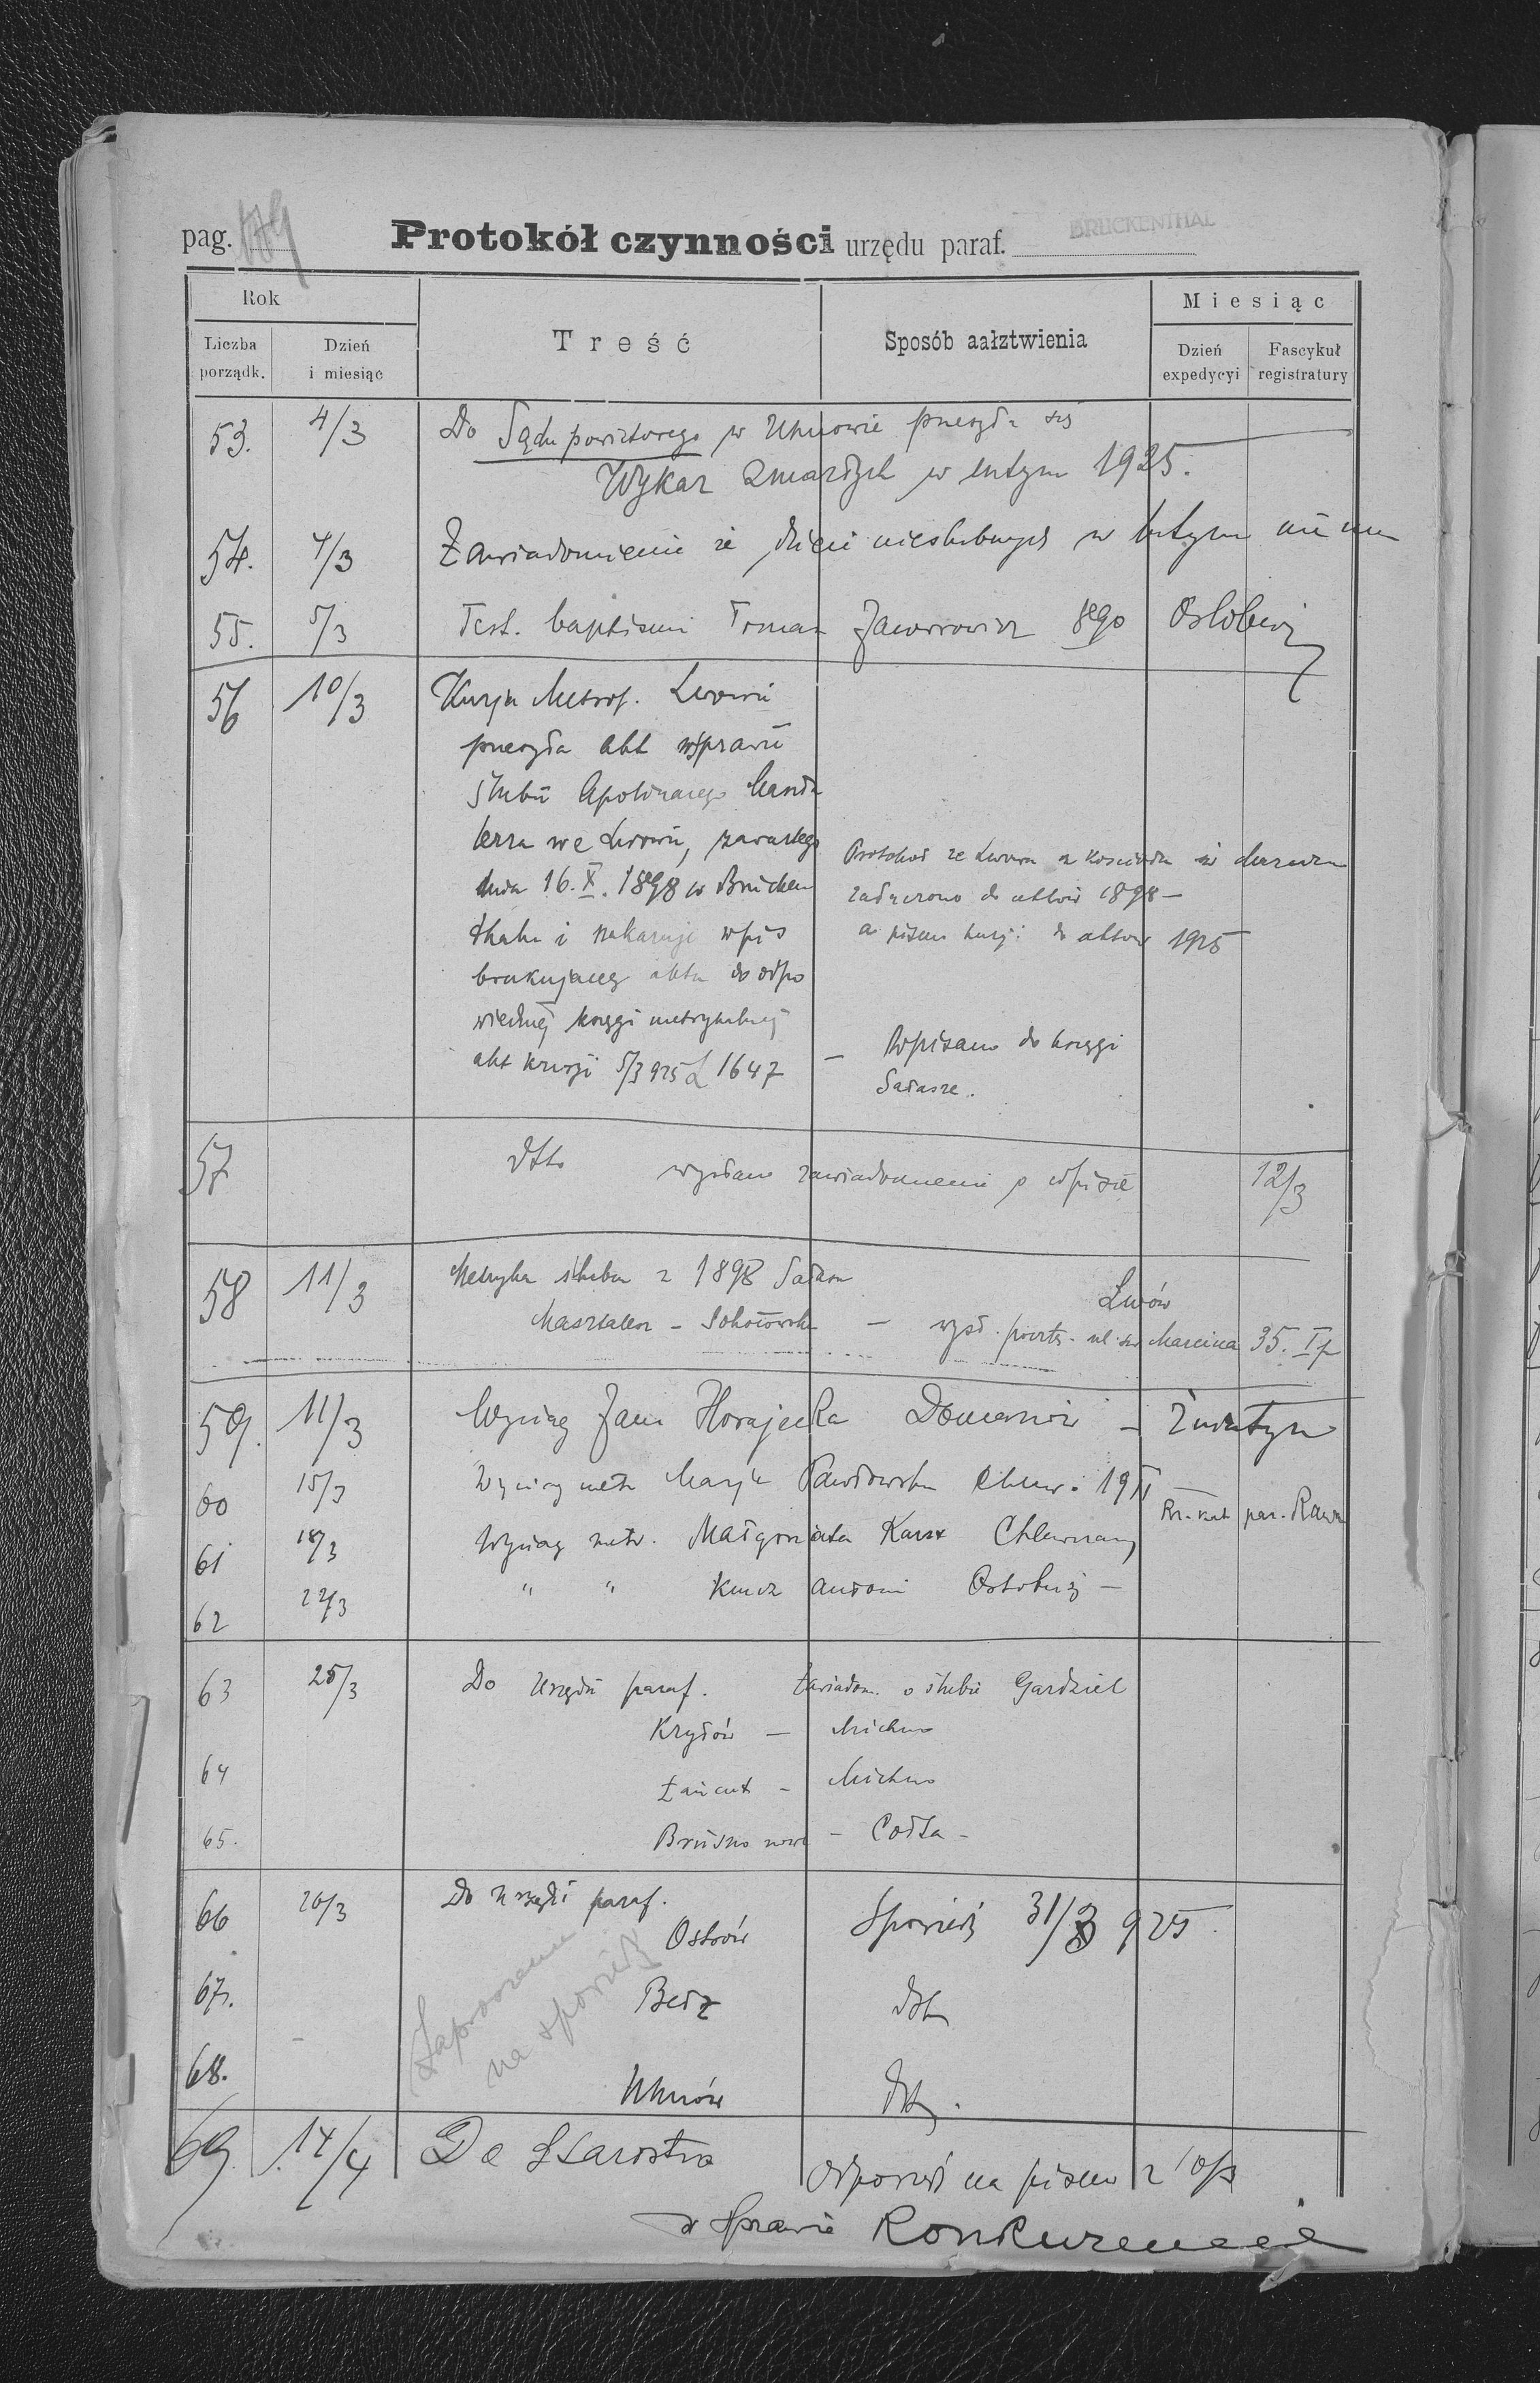 pag. 189
Protokół czynności urzędu paraf. BRUCKENTHAL
Rok
Miesiąc
Liczba porządk.
Dzień i miesiąc
Treść
Sposób aałztwienia
Dzień expedycyi
Fascykuł registratury
53. 4/3 Do Sądu powiatowego w Uhnowie przesyła się
Wykaz zmarłych w lutym 1925.
54. 4/3 Zawiadomienie że dzieci nieślubnych w lutym nie
55. 5/3 Test. baptismi Tomasz Jaworowicz 1890
56 10/3 Kurja Metrop. Lwowie
przesyła akt w sprawie
ślubu Apolinarego Marsza
lerza we Lwowie, zawartego
dnia 16. X. 1898 w Brucken
thalu i nakazuje wpis
brakującego aktu do odpo
wiedniej księgi metrykalnej
akt kurji 5/3 925 L 1647
Protokół ze Lwowa z kościoła św Marcina
załączono do aktów 1898 —
a pismo kurji do aktów 1925
— Wpisano do księgi
Sałasze.
57 dtto wysłano zawiadomienie o wpisie 12/3
58 11/3 Metryka ślubu z 1898 Sałasze
Marszalerz - Sokołowska — Lwów
wysł. poczto. ul. św Marcina 35. I p
59. 11/3 Wyciąg Jan Horajecka —
60 15/3 Wyciąg metr Marja Pawłowska 1911
Rz.-kat par. Rawa
61 18/3 Wyciąg metr. Małgorzata
62 22/3 " " Antoni —
63 25/3 Do Urzędu paraf. Zawiadom. o ślubie Gardziel
Kryłów — Michno
64 Łańcut - Michno
65. Brusno nowe - Codła -
66 26/3 Do Urzędu paraf.
Ostrów Spowiedź 31/3 925
Zaproszenie
na spowiedź
67. Bełz dtto
68. Uhnów dtto.
69. 14/4 Do Starostwa odpowiedź na pismo z
w sprawie Konkurencji